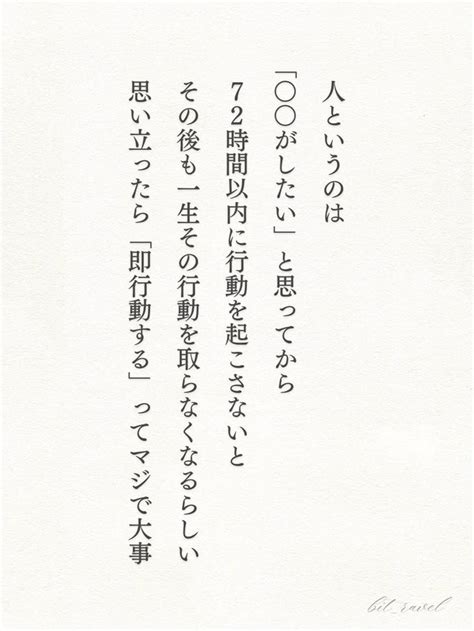 人というのは
「〇〇がしたい」と思ってから
７２時間以内に行動を起こさないと
その後も一生その行動を取らなくなるらしい
思い立ったら「即行動する」ってマジで大事
bil_ravel